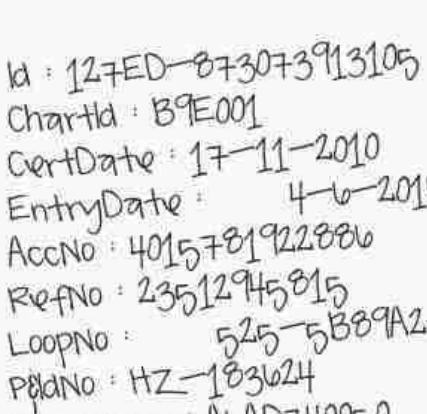 Id : 127ED-873073913105
ChartId : B9E001
CertDate : 17-11-2010
EntryDate : 4-6-201
AccNo : 4015781922886
RefNo : 23512945815
LoopNo : 525-5B89A2
PldNo : HZ-183624